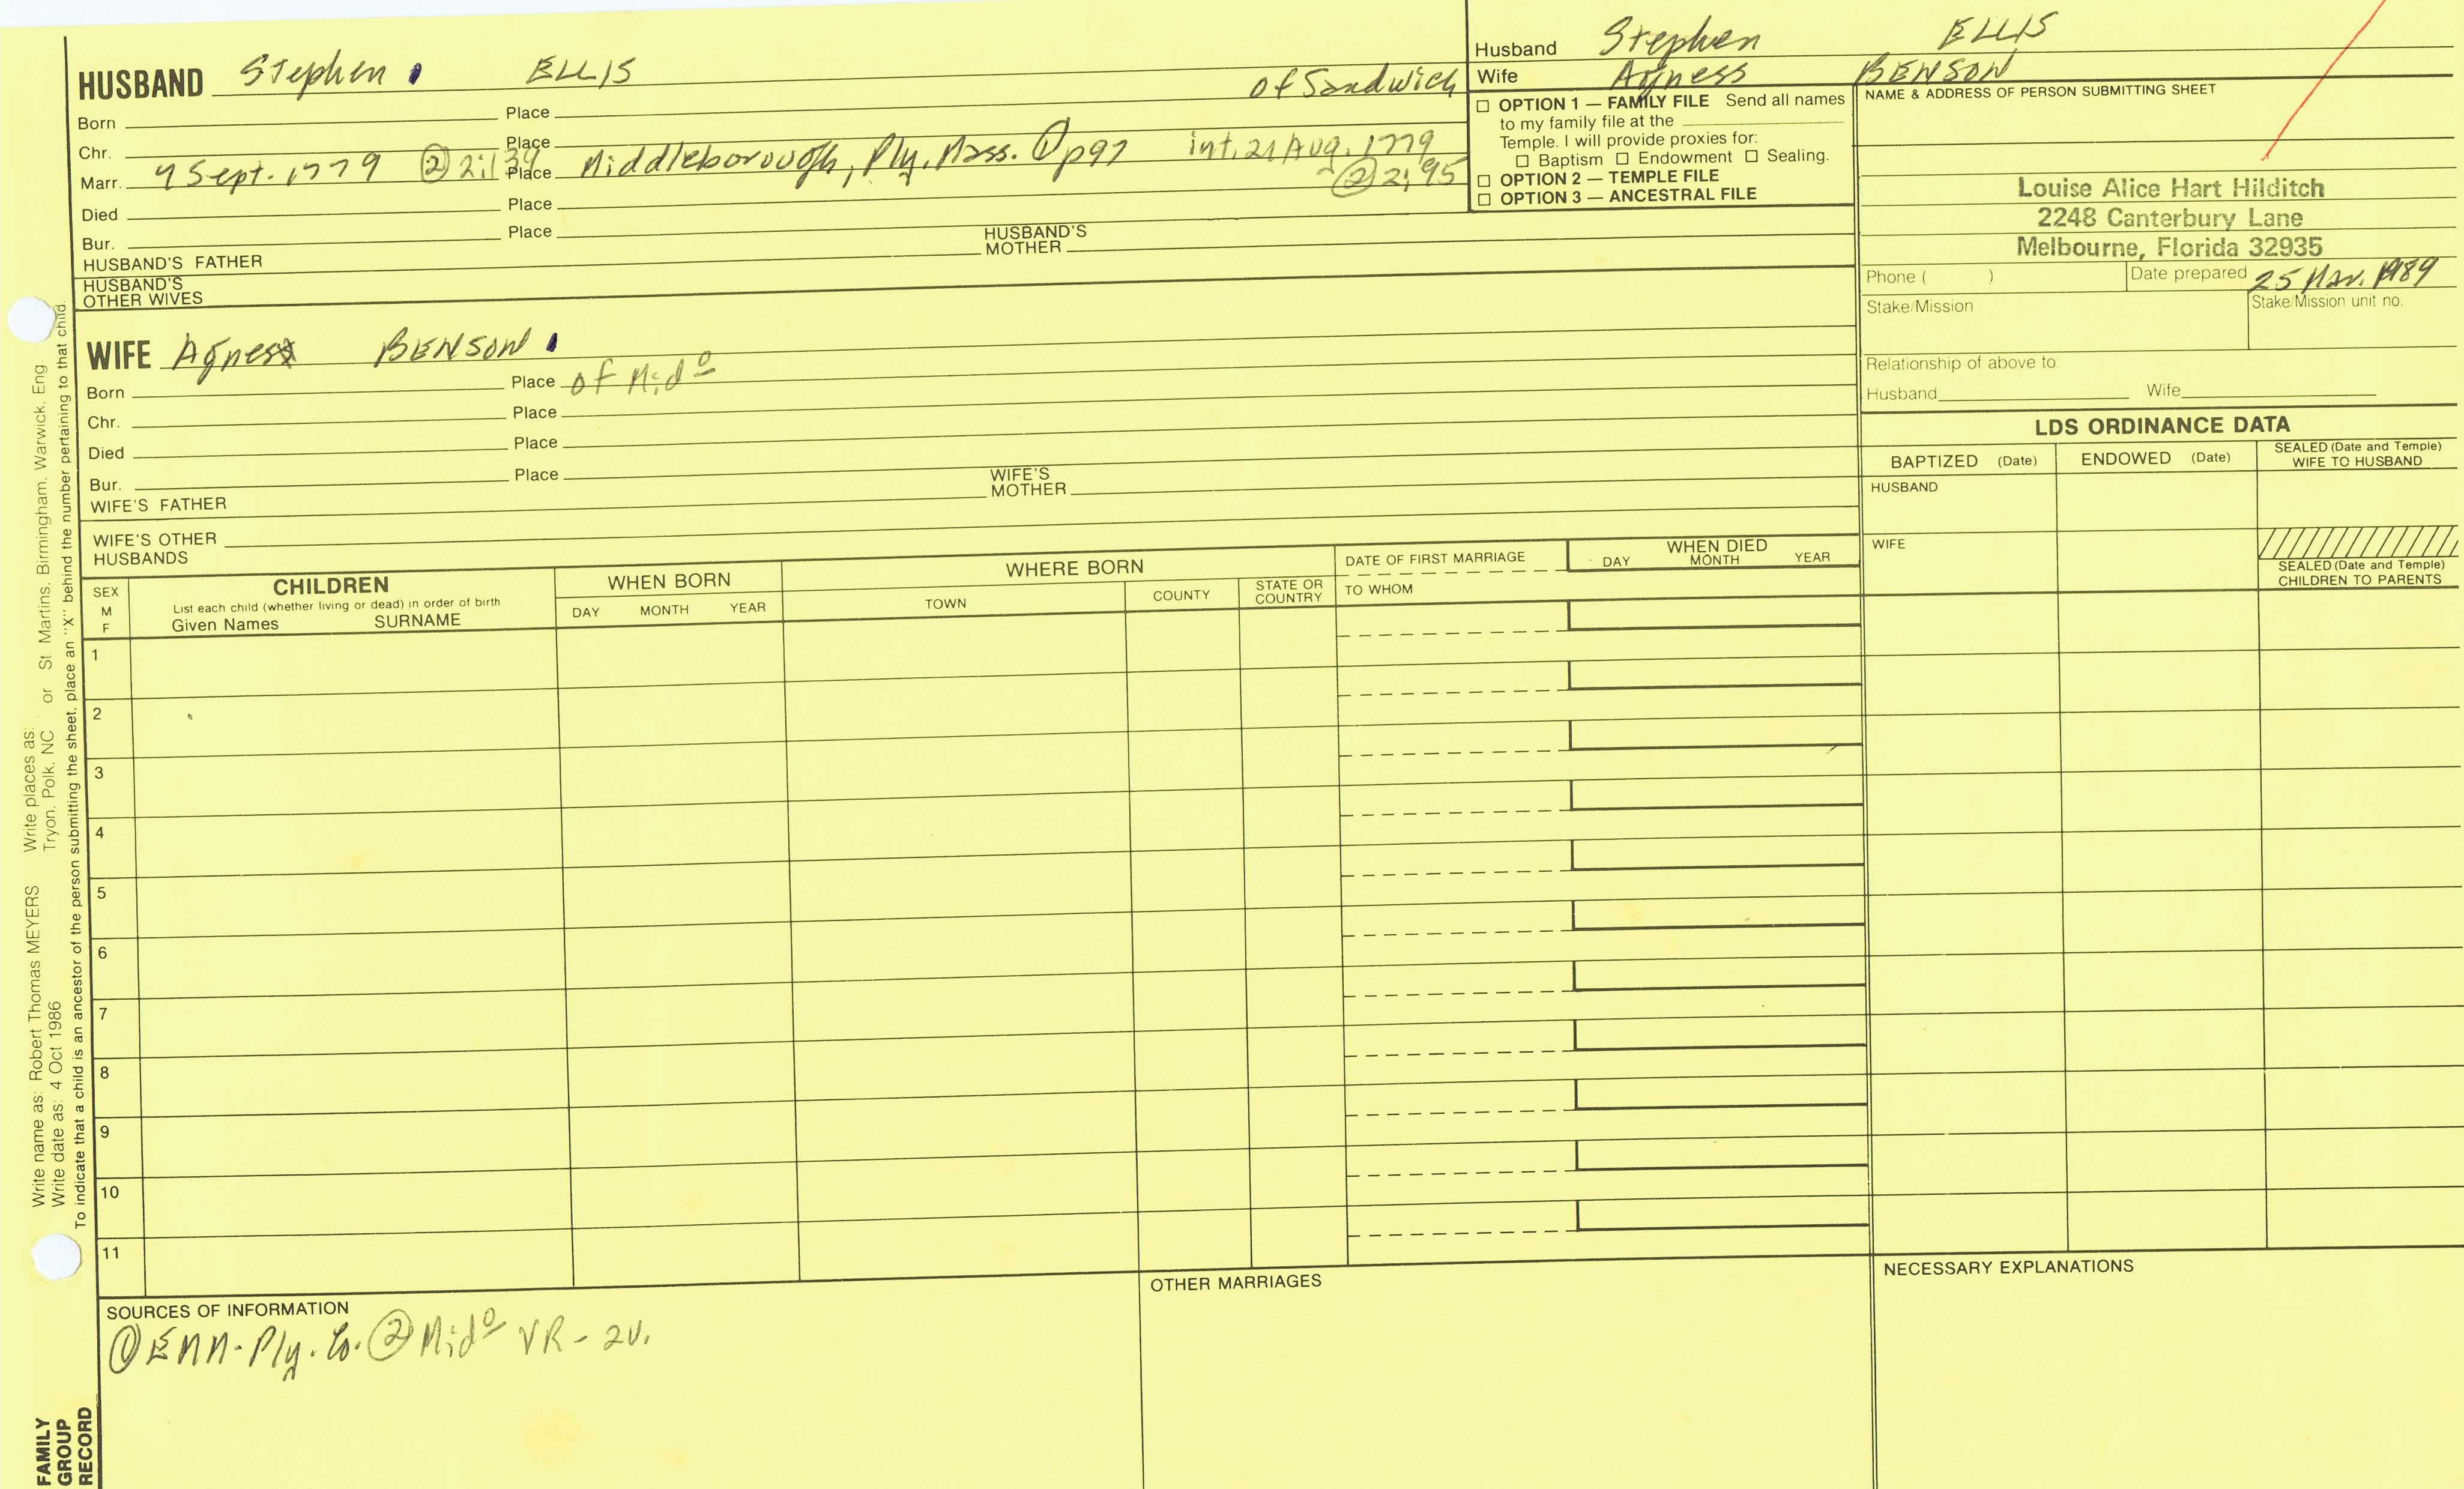 HUSBAND Stephen ELLIS of Sandwich
Born Place
Chr. Place
Marr. 9 Sept. 1779 ② 2:139 Place Middleborough, Ply. Mass. ① p97 int. 21 Aug. 1779 ② 2:95
Died Place
Bur. Place
HUSBAND'S FATHER HUSBAND'S MOTHER
HUSBAND'S OTHER WIVES
WIFE Agness BENSON
Born Place of Mid⁰
Chr. Place
Died Place
Bur. Place
WIFE'S FATHER WIFE'S MOTHER
WIFE'S OTHER HUSBANDS
Husband Stephen ELLIS
Wife Agness BENSON
☐ OPTION 1 — FAMILY FILE Send all names
to my family file at the
Temple. I will provide proxies for:
☐ Baptism ☐ Endowment ☐ Sealing.
☐ OPTION 2 — TEMPLE FILE
☐ OPTION 3 — ANCESTRAL FILE
NAME & ADDRESS OF PERSON SUBMITTING SHEET
Louise Alice Hart Hilditch
2248 Canterbury Lane
Melbourne, Florida 32935
Phone ( ) Date prepared 25 Mar. 1989
Stake/Mission Stake/Mission unit no.
Relationship of above to:
Husband Wife
LDS ORDINANCE DATA
BAPTIZED (Date) ENDOWED (Date) SEALED (Date and Temple) WIFE TO HUSBAND
HUSBAND
WIFE
SEALED (Date and Temple) CHILDREN TO PARENTS
SEX M F
CHILDREN
List each child (whether living or dead) in order of birth
Given Names SURNAME
WHEN BORN
DAY MONTH YEAR
WHERE BORN
TOWN COUNTY STATE OR COUNTRY
DATE OF FIRST MARRIAGE
TO WHOM
WHEN DIED
DAY MONTH YEAR
1
2
3
4
5
6
7
8
9
10
11
SOURCES OF INFORMATION
① EMM-Ply. Co. ② Mid⁰ VR - 2v.
OTHER MARRIAGES
NECESSARY EXPLANATIONS
Write name as: Robert Thomas MEYERS Write places as:
Write date as: 4 Oct 1986 Tryon, Polk, NC or St. Martins, Birmingham, Warwick, Eng.
To indicate that a child is an ancestor of the person submitting the sheet, place an "X" behind the number pertaining to that child.
FAMILY
GROUP
RECORD